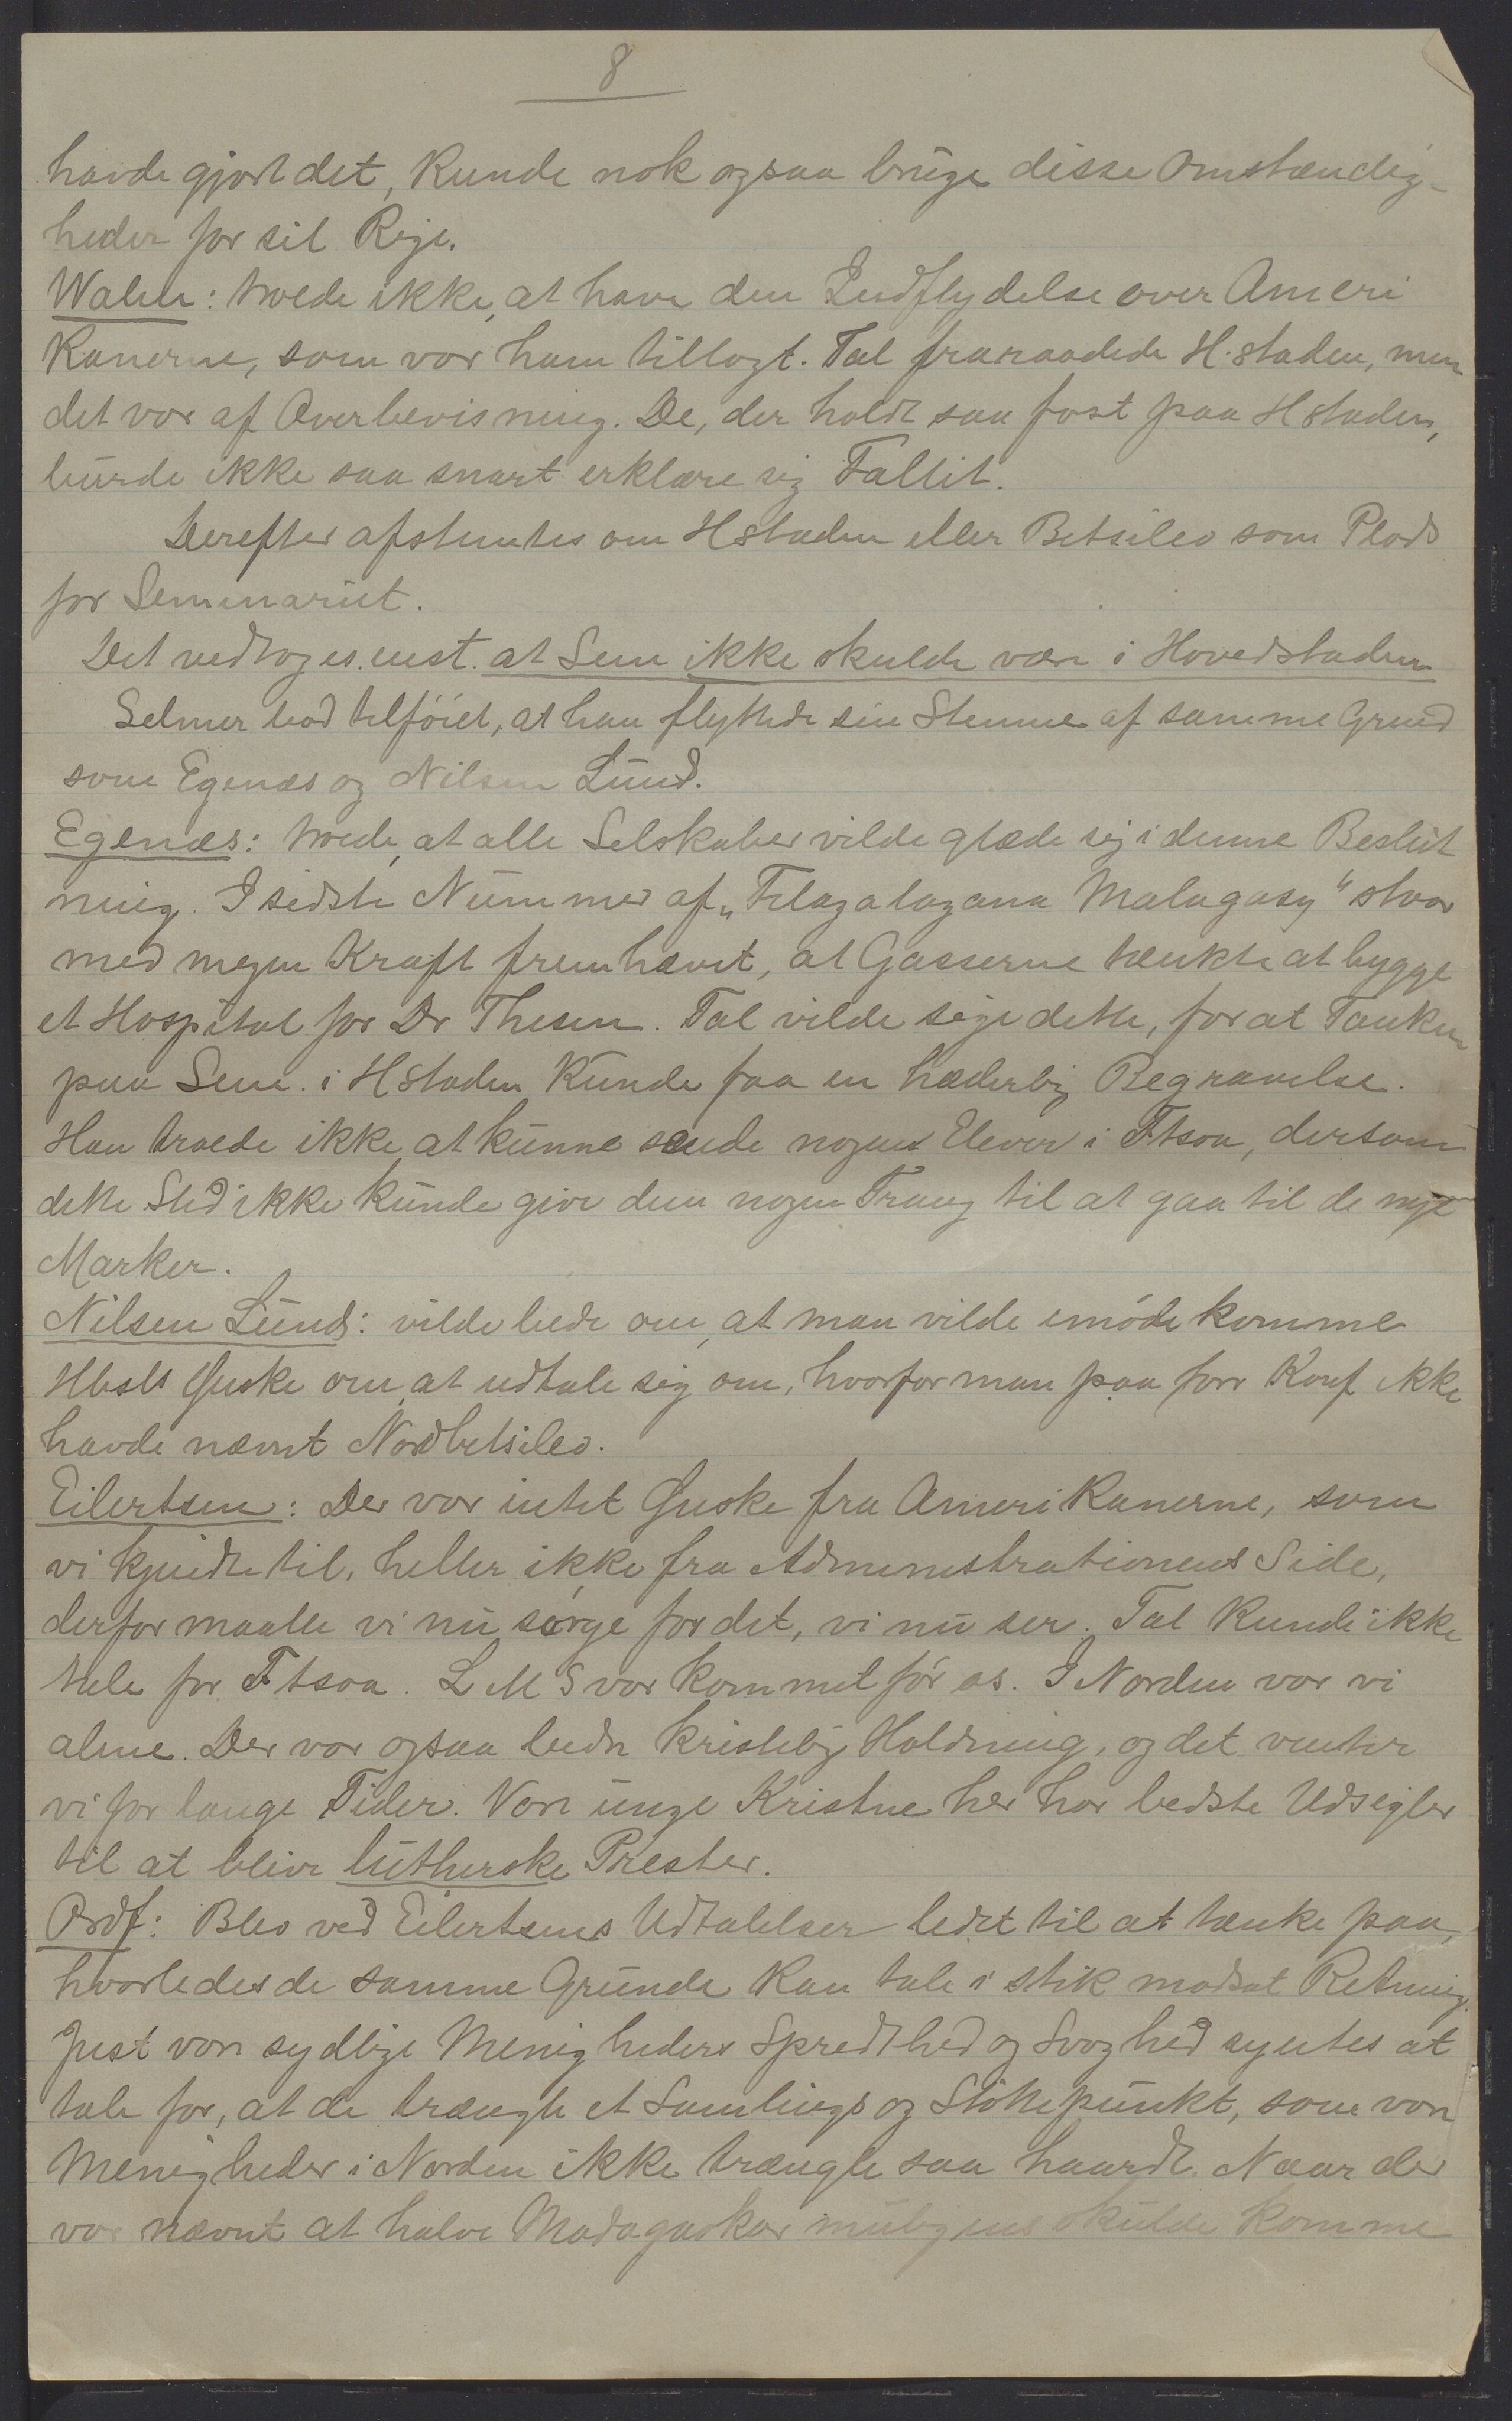 8
havde gjort det, kunde nok ogsaa bruge disse Omstændig-
heder for sit Rige.
Walen: troede ikke, at have den Indflydelse over Ameri
kanerne, som var ham tillagt. Tal fraraadede H.staden, men
det var af Overbevisning. De, der holdt saa fast paa Hstaden,
burde ikke saa snart erklære sig Fallit.
Derefter afstemtes om Hstaden eller Betsileo som Plads
for Seminariet.
Det vedtoges enst. at Sem ikke skulde være i Hovedstaden
Selmer bad tilføiet, at han flyttede sin Stemme af samme Grund
som Egenæs og Nilsen Lund.
Egenæs: troede, at alle Selskaber vilde glæde sig i denne Beslut
ning. I sidste Nummer af „Filazalazana Malagasy" stvar
med megen Kraft fremhævet, at Gasserne tænkte at bygge
et Hospital for Dr Thesen. Tal vilde sige dette, for at Tanken
paa Sem. i Hstaden kunde faa en hæderlig Begravelse.
Han troede ikke, at kunne sende nogen Elever i Ftsoa, dersom
dette Sted ikke kunde give dem nogen Trang til at gaa til de nye
Marker.
Nilsen Lund: vilde bede om, at man vilde imøde komme
Hbsts Ønske om, at udtale sig om, hvorfor man paa forr Konf ikke
havde nævnt Nordbetsileo.
Eilertsen: Der var intet Ønske fra Amerikanerne, som
vi kjendte til, heller ikke fra Administrationens Side,
derfor maatte vi nu sørge for det, vi nu ser. Tal kunde ikke
tale for Ftsoa. L M S var kommet før os. I Norden var vi
alene. Der var ogsaa bedre kristelig Holdning, og det venter
vi for lange Tider. Vore unge Kristne her har bedste Udsigter
til at blive lutherske Prester.
Ordf: Blev ved Eilertsens Udtalelser ledet til at tænke paa,
hvorledes de samme Grunde kan tale i stik modsat Retning.
Just vore sydlige Menigheders Spredthed og Svaghed syntes at
tale for, at de trængte et Samlings og Støttepunkt, som vore
Menigheder i Norden ikke trængte saa haardt. Naar der
var nævnt at halve Madagaskar muligens skulde komme